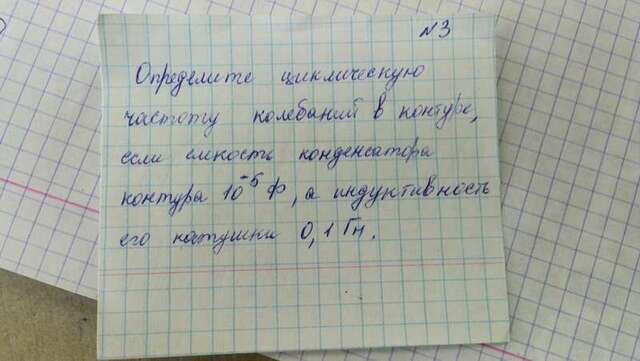 N3
Определите циклическую
частоту колебаний в контуре,
если емкость конденсатора
контура 10⁻⁵ Ф, а индуктивность
его катушки 0,1 Гн.